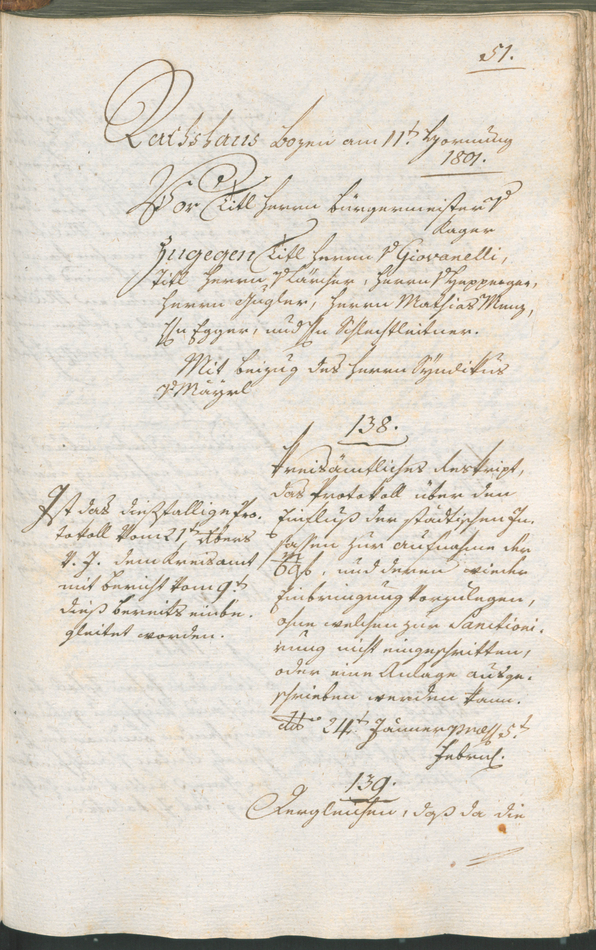 51.
Rathshaus Bozen am 11t. Hornung
1801.
Vor Titl Herrn Bürgermeister v
Kager
Zugegen Titl Herrn v Giovanelli,
Titl Herrn v Lárcher, Herrn v Hepperger,
Herrn Gugler, Herrn Mathias Menz,
Hn Egger, und Hn Schlechtleitner.
Mit Beizug des Herrn Syndikus
v Mayrl
138.
Kreisämtliches Reskript,
das Protokoll über den
Einfluß der städtischen In,
sassen zur Aufnahme der
m/60 f, und deren wieder
Einbringung vorzulegen,
ohne welchen zur Sanctioni,
rung nicht eingeschritten,
oder eine Anlage ausge,
schrieben werden kann.
dto 24t Jänner præs 5t
Februs.
Ist das dießfallige Pro,
tokoll vom 21t Xbers
v. J. dem Kreisamt
mit Bericht vom 9t
dieß bereits einbe,
gleitet worden.
139.
Dergleichen, daß da die